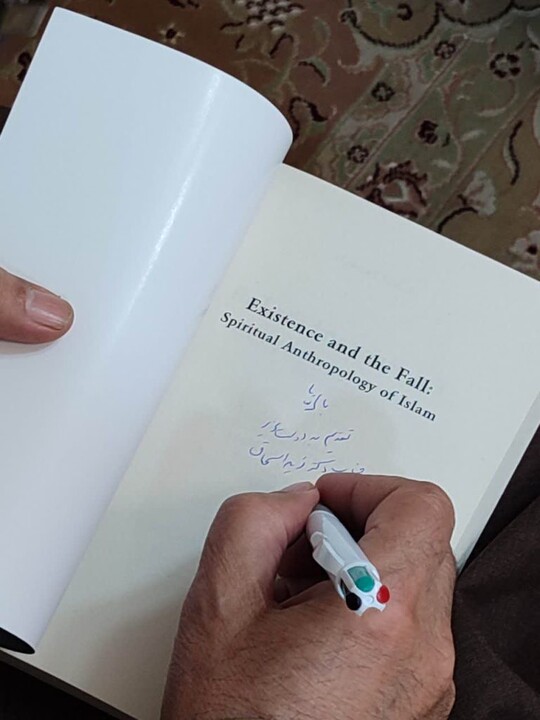 Existence and the Fall:
Spiritual Anthropology of Islam
تقدیم به دوست
جناب دکتر